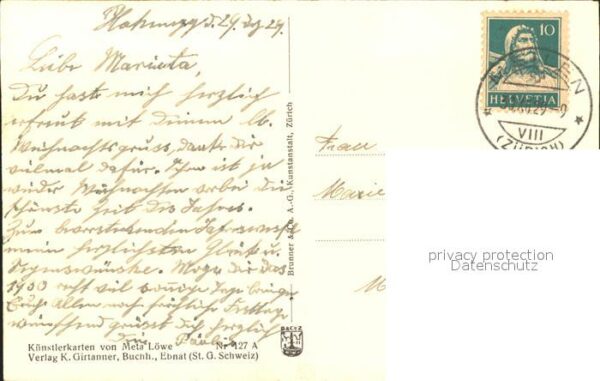 d. 29. Dez 29.
Liebe Marieta,
Du hast mich herzlich
erfreut mit Deinem lb.
Weihnachtsgruss, danke dir
vielmal dafür. Nun ist ja
wieder Weihnachten vorbei die
schönste Zeit des Jahres.
Zum bevorstehenden Jahreswechsel
meine herzlichsten Glück u.
Segenswünsche. Möge dir das
1930 recht viel sonnige Tage bringen
Euch Allen noch fröhliche Festtage
wünschend grüsst dich herzlich
Künstlerkarten von Meta Löwe Nr 127 A
Verlag K. Girtanner, Buchh., Ebnat (St. G. Schweiz)
Brunner & Cie. A.-G., Kunstanstalt, Zürich
10
HELVETIA
VIII
(ZÜRICH)
Frau
Marie
M
privacy protection
Datenschutz